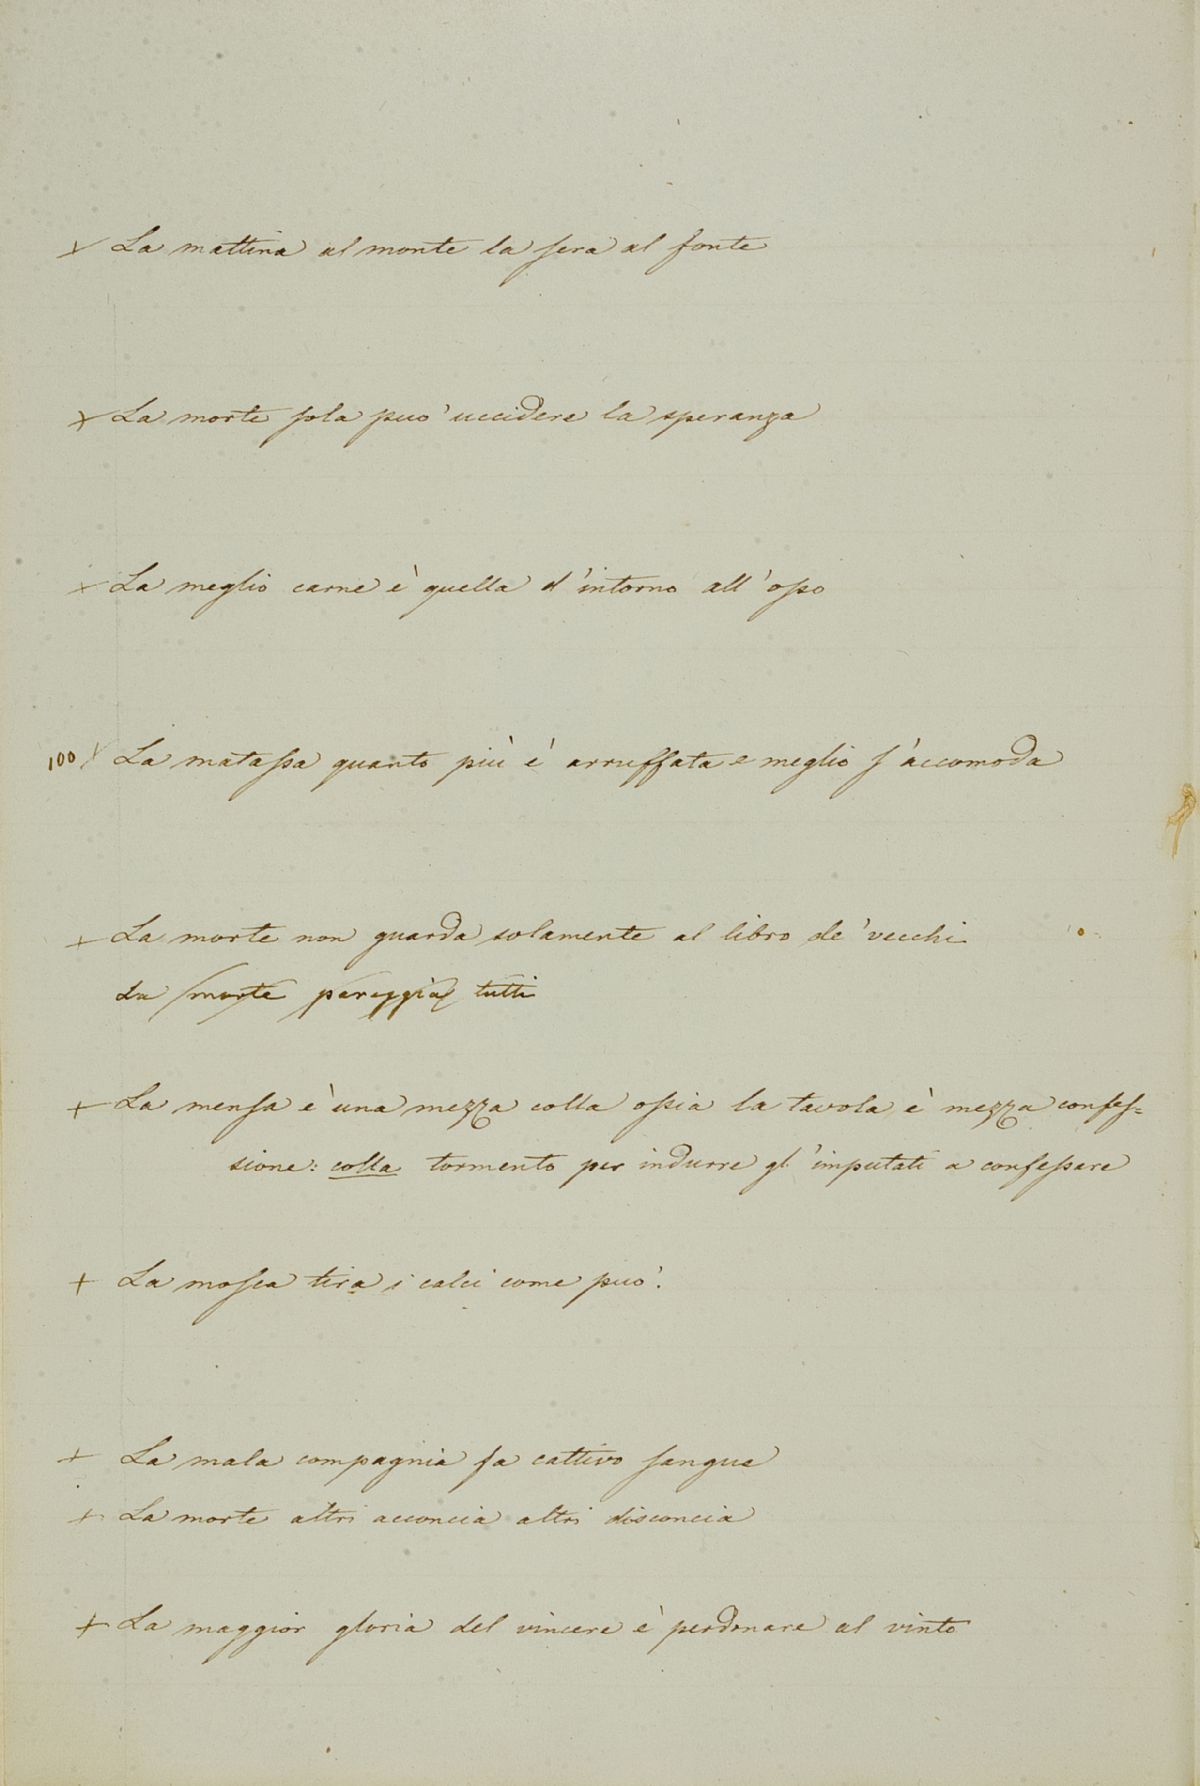 + La mattina al monte la sera al fonte
+ La morte sola puo' uccidere la speranza
+ La meglio carne è quella d'intorno all'osso
100 + La matassa quanto più è arruffata e meglio s'accomoda
+ La morte non guarda solamente al libro de' vecchi
La morte pareggia tutti
+ La mensa è una mezza colla ossia la tavola è mezza confes=
sione: colla tormento per indurre gl'imputati a confessare
+ La mosca tira i calci come puo'.
+ La mala compagnia fa cattivo sangue
+ La morte altri acconcia altri disconcia
+ La maggior gloria del vincere è perdonare al vinto